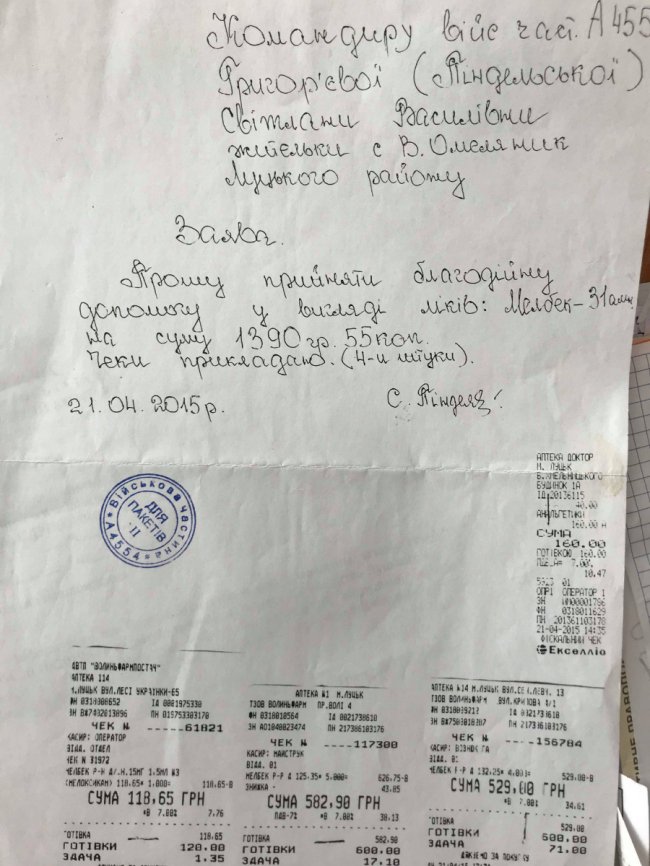 Командиру військ част. А 455
Григор'євої (Пíндельської)
Світлани Василівни
жительки с В. Омеляник
Луцького району
Заява.
Прошу прийняти благодійну
допомогу у вигляді ліків: Мелбек-31амп
на суму 1390гр. 55коп.
Чеки прикладаю. (4-и штуки).
21.04.2015р.
С. Пíндель
Військова частина
* А4554 *
ДЛЯ
ПАКЕТІВ
II
АПТЕКА ДОКТОР
М. ЛУЦЬК
Б.ХМЕЛЬНИЦЬКОГО
БУДИНОК 1А
ІД 20136115
40.00
АНАЛЬГЕТИКИ
160.00 Н
СУМА
160.00
ГОТІВКОЮ 160.00
7.00%
10.47
01
ОПР1 ОПЕРАТОР 1
ФН 0318011629
ПН 201361103178
21-04-2015 14:35
ФІСКАЛЬНИЙ ЧЕК
Екселліо
АВТП "ВОЛИНЬФАРМПОСТАЧ"
АПТЕКА 114
М.ЛУЦЬК ВУЛ.ЛЕСІ УКРАЇНКИ-65
ФН 0318008652 ІД 0001975330
ЗН ВА7402013096 ПН 019753303170
ЧЕК № ....61821
КАСИР: ОПЕРАТОР
ВІДД. ОТДЕЛ
ЧЕК N 31972
МЕЛБЕК Р-Н Д/.Н.15МГ 1.5МЛ №3
(МЕЛОКСИКАМ) 118.65* 1.000= 118.65-В
СУМА 118,65 ГРН
*В 7.00% 7.76
ГОТІВКА 118.65
ГОТІВКИ 120.00
ЗДАЧА 1.35
АПТЕКА №1 М.ЛУЦЬК
ТЗОВ ВОЛИНЬФАРМ ПР.ВОЛІ 4
ФН 0318010564 ІД 0021738610
ЗН АО1040023474 ПН 217386103176
ЧЕК № ....117300
КАСИР: МАЙСТРУК
ВІДД. 01
МЕЛБЕК Р-Р Д 125.35* 5.000= 626.75-В
ЗНИЖКА - 43.85
СУМА 582,90 ГРН
ПДВ-7% *В 7.00% 38.13
ГОТІВКА 582.90
ГОТІВКИ 600.00
ЗДАЧА 17.10
АПТЕКА №14 М.ЛУЦЬК 13
ТЗОВ ВОЛИНЬФАРМ ВУЛ.КРИВОВА
ПН 217386103176
ЧЕК № ....156784
ВІДД. 01
МЕЛБЕК Р-Р Д 132.25* 4.000= 529.00-В
СУМА 529,00 ГРН
*В 7.00% 34.61
ГОТІВКА 529.00
ГОТІВКИ 600.00
ЗДАЧА 71.00